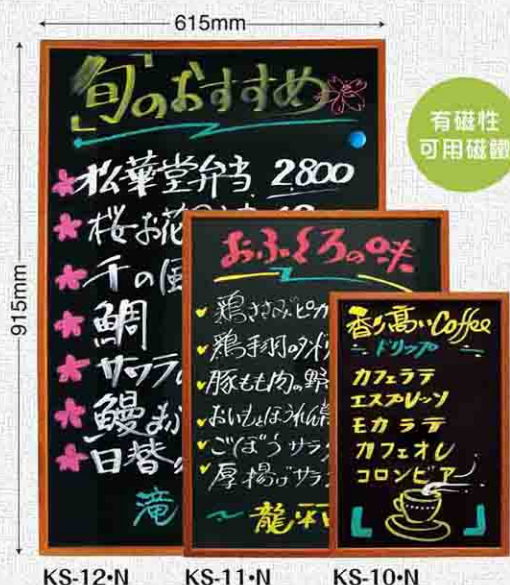 615mm
915mm
有磁性
可用磁鐵
「旬」のおすすめ
松華堂弁当 2800
桜お花
千の風
鯛
サワラ
鰻お
日替
滝
おふくろの味
鶏ささみピカ
鶏手羽の
豚もも肉の野
おいもとほうれん草
ごぼうサラ
厚揚げサラ
龍
香り高いCoffee
ドリップ
カフェラテ
エスプレッソ
モカラテ
カフェオレ
コロンビア
KS-12・N KS-11・N KS-10・N